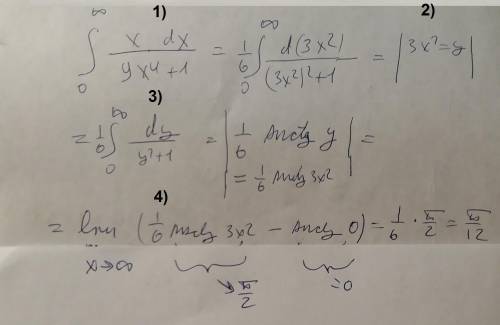 1) 2)
∫₀^∞ x dx / (9x⁴+1) = 1/6 ∫₀^∞ d(3x²) / ((3x²)²+1) = |3x²=y|
3)
= 1/6 ∫₀^∞ dy / (y²+1) = | 1/6 arctg y
= 1/6 arctg 3x² | =
4)
= lim (1/6 arctg 3x² − arctg 0) = 1/6 · π/2 = π/12
x→∞ → π/2 =0